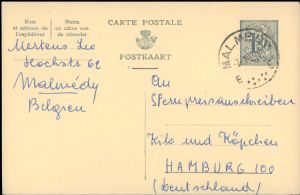 Nom
et adresse de
l'expéditeur
Naam
en adres van
de afzender
CARTE POSTALE
POSTKAART
Mertens Leo
Hochstr 62
Malmédy
Belgien
MALMEDY
E
An
Fernpreisausschreiben
Kilo und Köpchen
HAMBURG 100
(Deutschland)